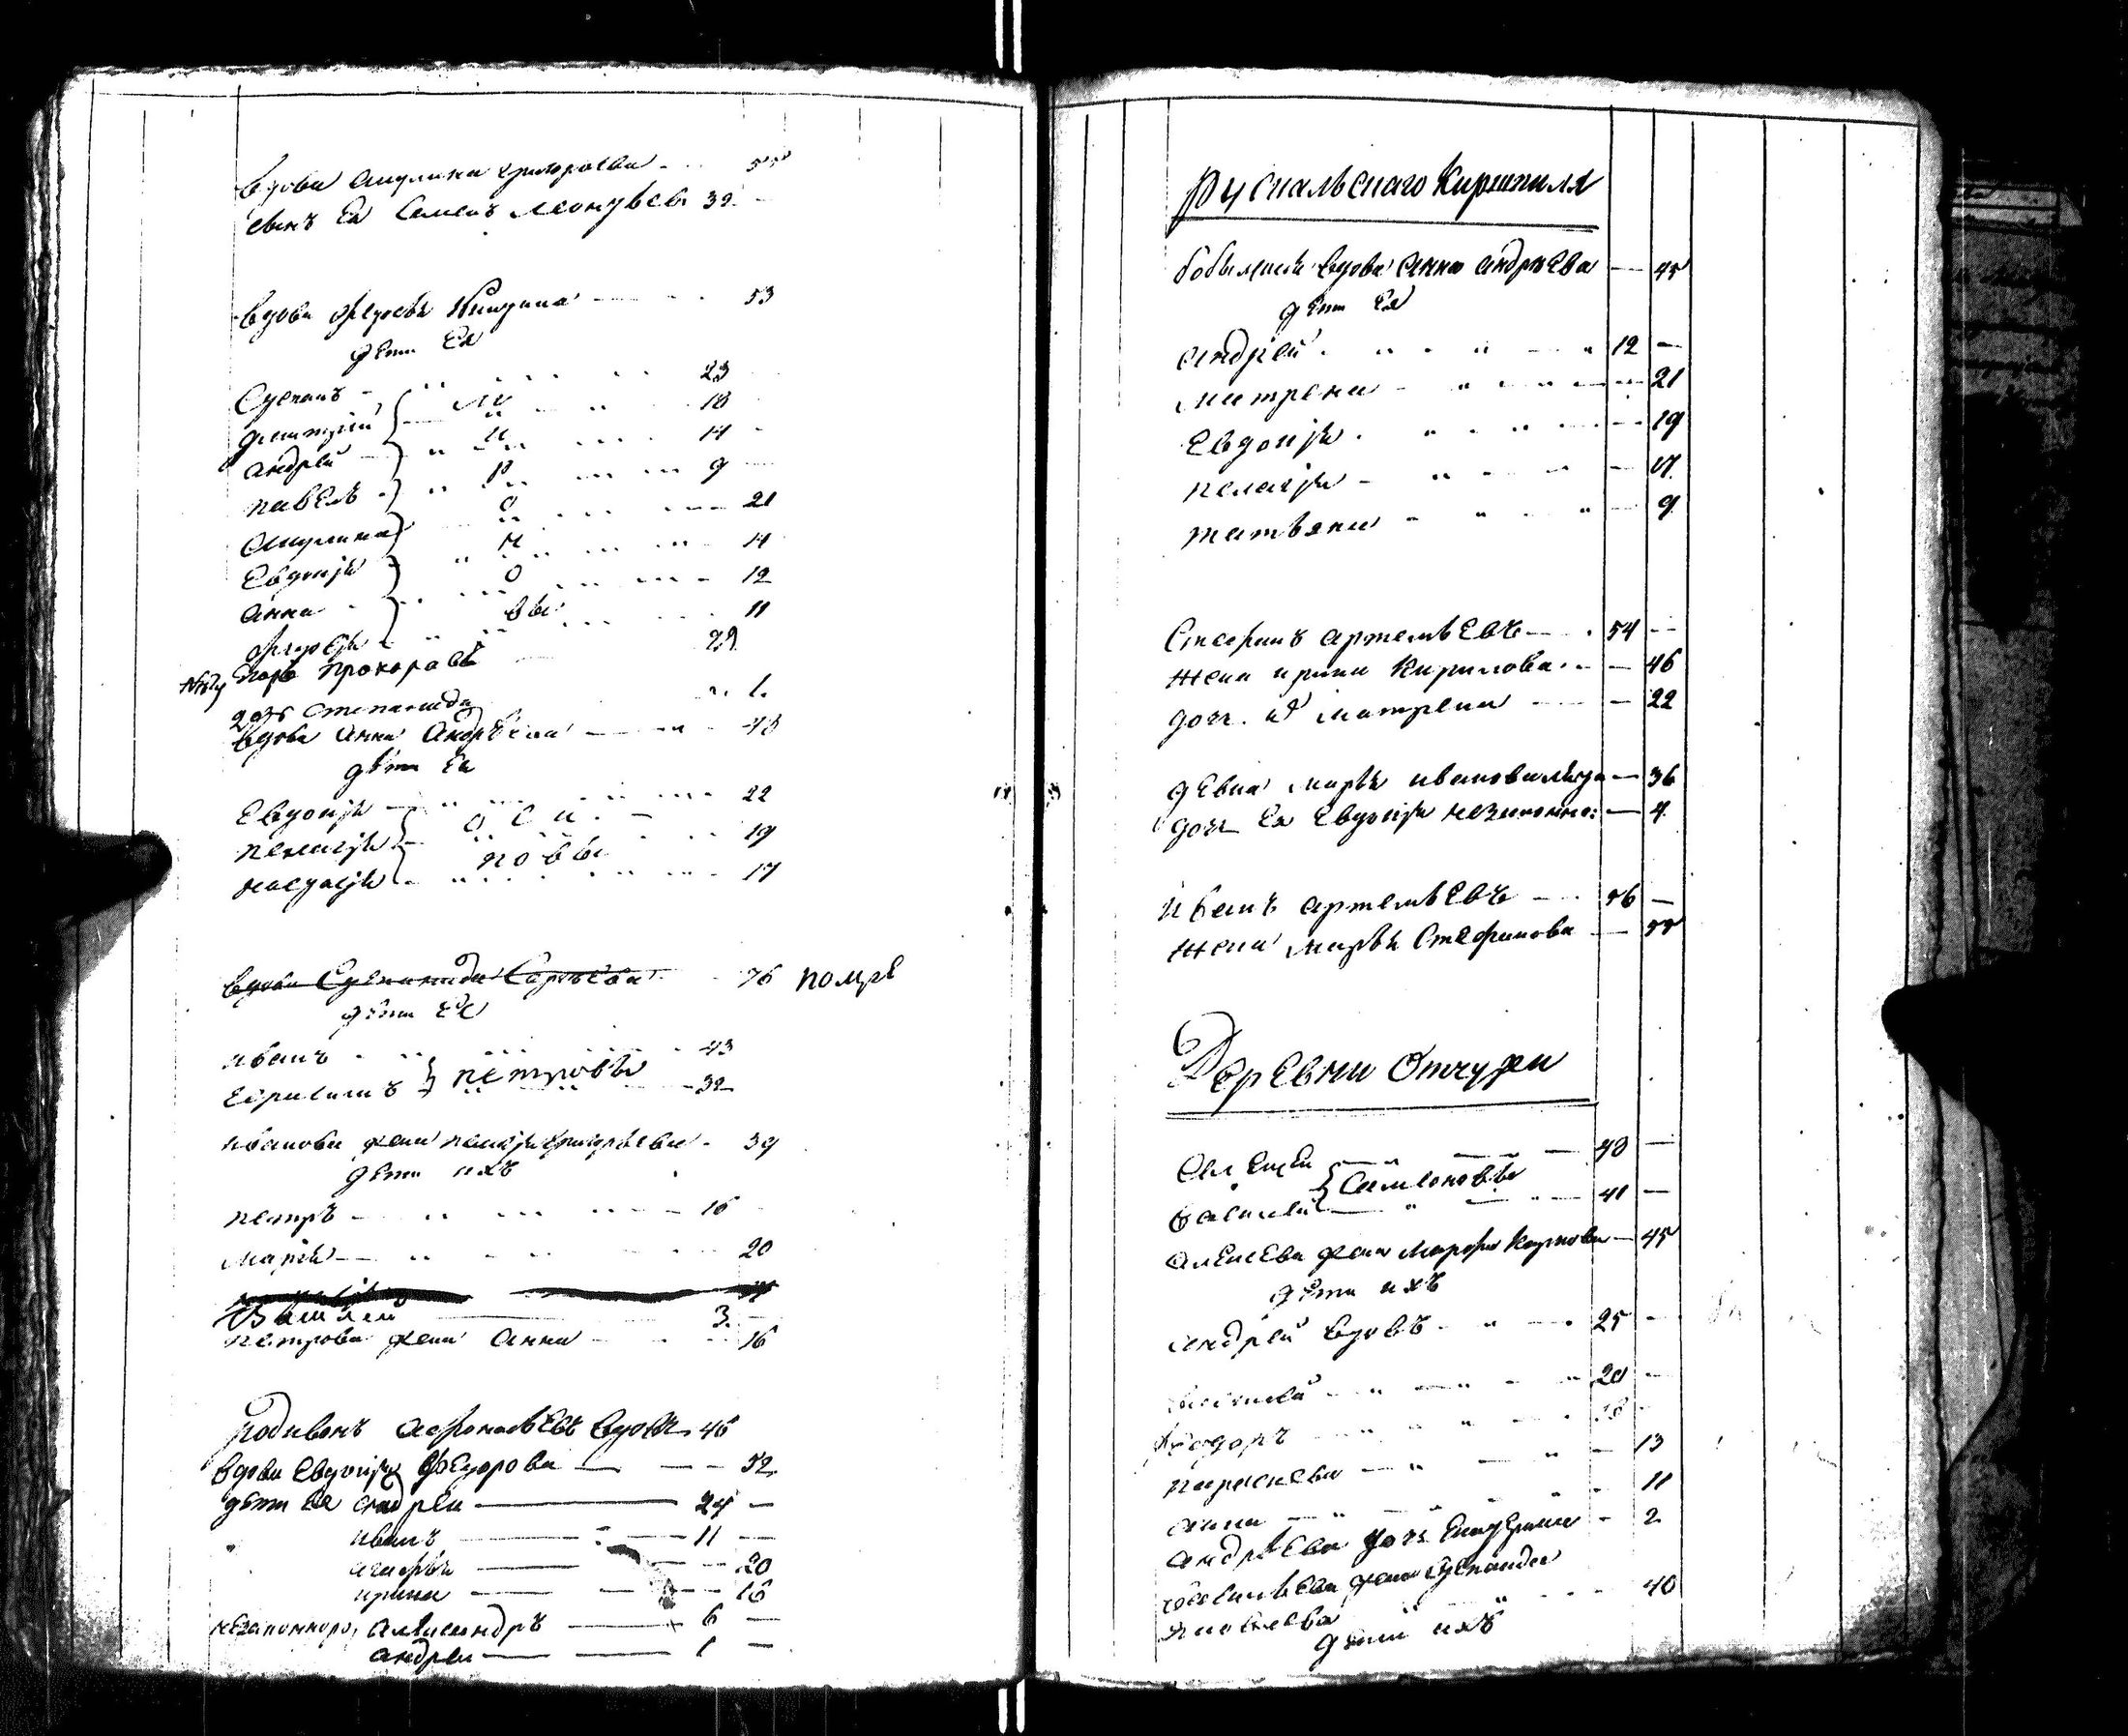 вдова Акулина григорьева - 55
сынъ Ея Семенъ Леонтьевъ 32 -
вдова Федосья Никитина - 53
дѣти Ея
Степанъ - 23
Дмитрий 18
андрей 14 -
павелъ 9
Акулина 21
Евдокія 14
анна 12
Федосья вы 11
прохоровъ 29
дочь степанида 1.
вдова анна андрѣева - 48
дѣти Ея
Евдокія - 22
пелагія - 19
настасія новы 17
вдова Степанида Сергѣева 76 помре
дѣти Ее
иванъ - 43
Ефимъ } петровы 32
иванова жена пелагія григорьева - 39
дѣти ихъ
петръ - 16
марья - 20
Василей 3. -
петрова жена анна - 16
родивонъ вдовъ 46
вдова Евдокія Федорова - 52
дѣти Ея андреи - 24 -
иванъ - 11 -
агафья - 20
ирина - 16
незаконноро: александръ - 6 -
андреи - 1 -
Рускальскаго Киршпиля
бобылка вдова анна андрѣева - 45
дѣти Ея
андрей 12 -
матрена - 21
Евдокія - 19
пелагія - 17
татьяна - 9
Стефанъ артемьевъ - 54 -
жена ирина Кирилова - 46
дочь их матрена - 22
дѣвка марья иванова - 36
дочь Ея Евдокія незаконно: - 4
иванъ артемьевъ - 56 -
жена марья Стефанова - 55
Деревни
Алексѣи 48 -
василей } Симоновы 41 -
алексѣева жена марфа Карпова - 45
дѣти ихъ
андрей вдовъ - 25 -
василей 20 -
Федоръ 16 -
парасковья - 13
анна 11
андрѣева дочь Екатерина - 2
васильева жена Степанида
яковлева 40
дѣти ихъ